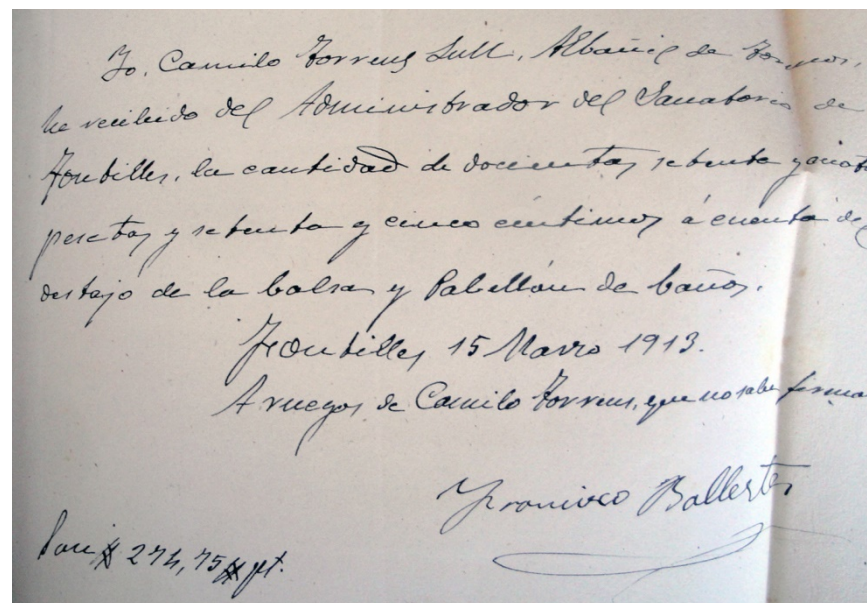 Yo, Camilo Torrens Sull, Albañil de Tormos,
he recibido del Administrador del Sanatorio de
Fontilles, la cantidad de docientas setenta y cuatro
pesetas y setenta y cinco céntimos á cuenta del
destajo de la balsa y Pabellón de baños.
Fontilles 15 Marzo 1913.
A ruegos de Camilo Torrens, que no sabe firmar
Francisco Ballester
Son # 274,75 # pt.